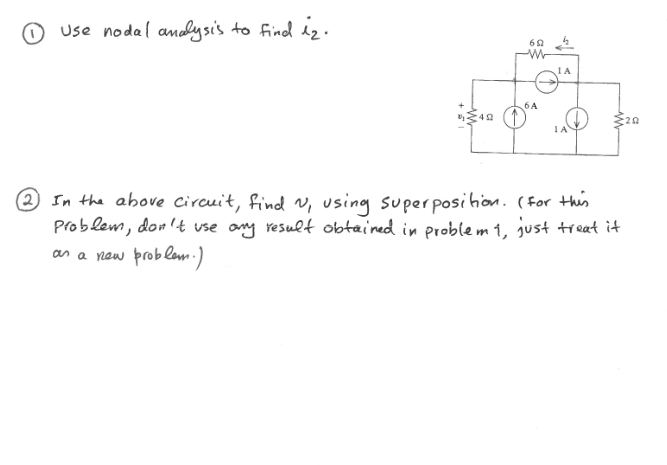 ① Use nodal analysis to find i₂.
6Ω i₂
1 A
+ 6 A
v₁ 4Ω 2Ω
1 A
② In the above circuit, find v₁ using superposition. (For this
problem, don't use any result obtained in problem 1, just treat it
as a new problem.)